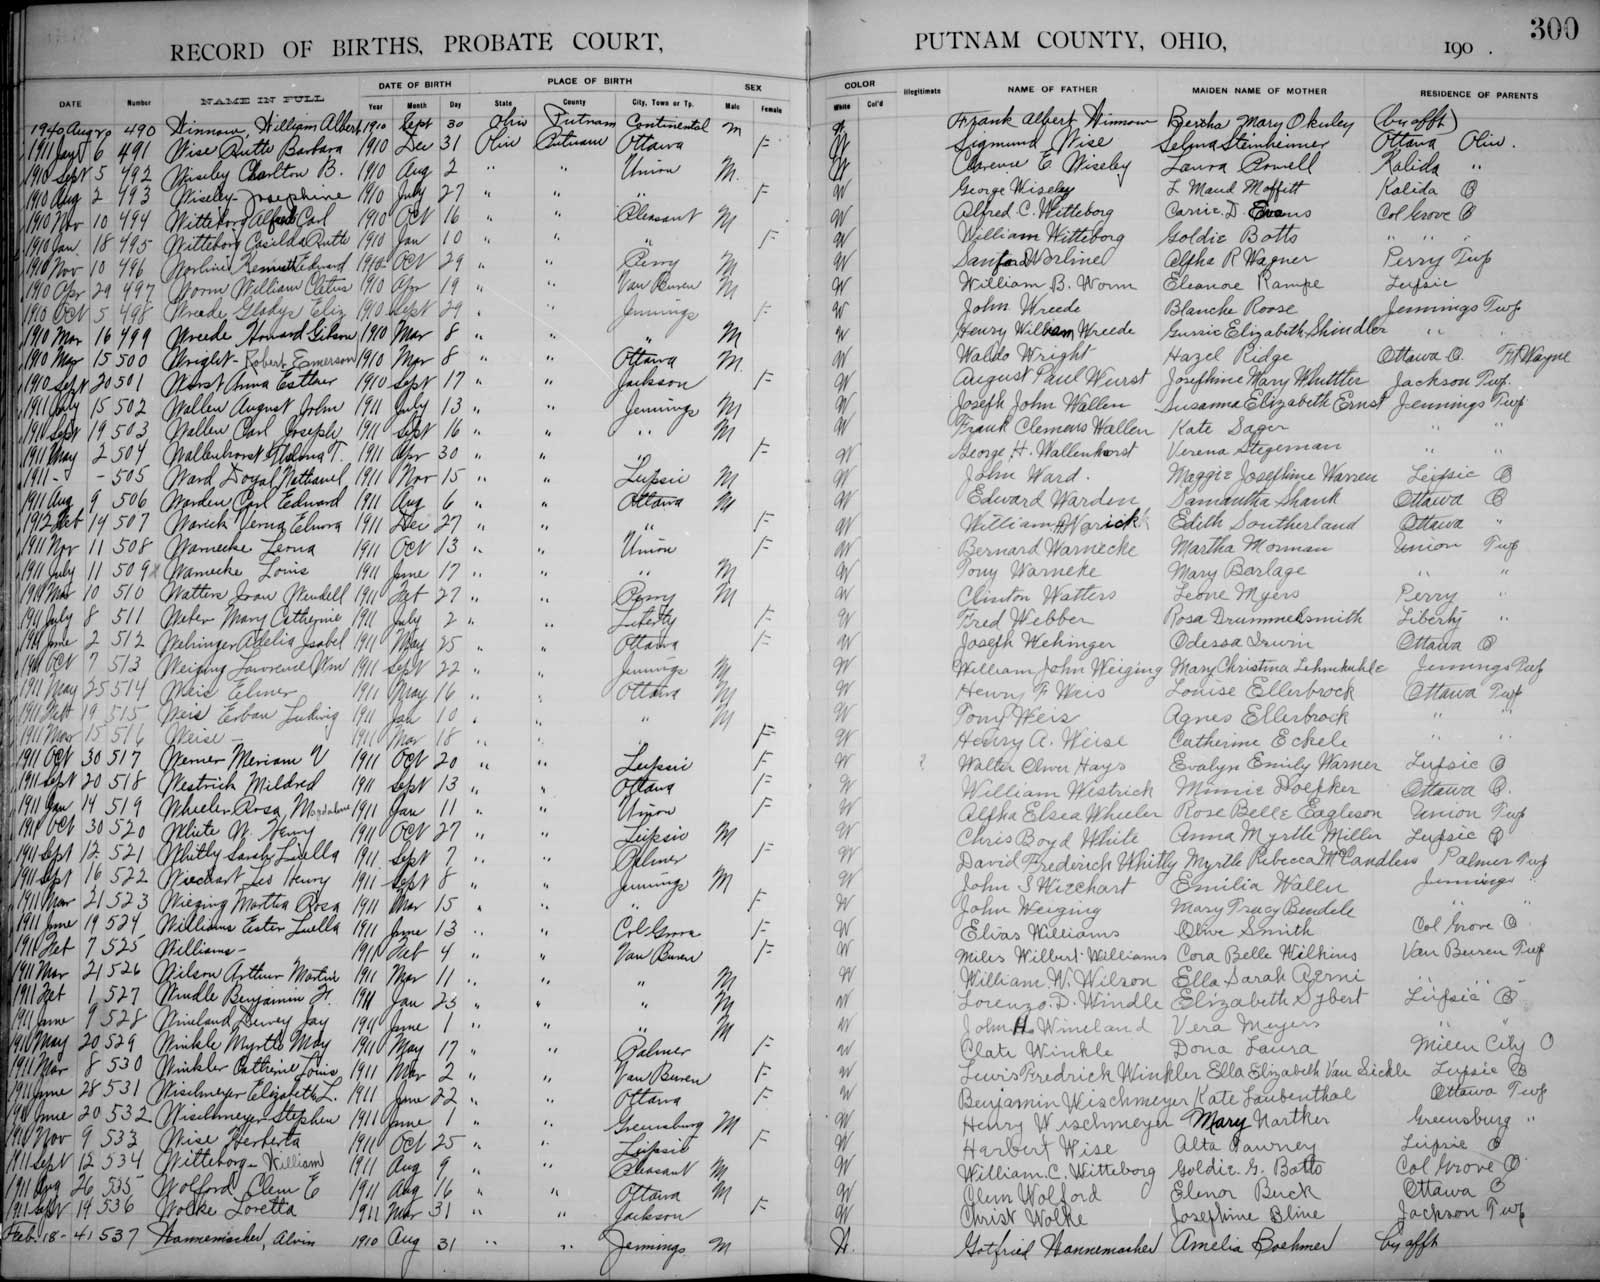 300
RECORD OF BIRTHS, PROBATE COURT, PUTNAM COUNTY, OHIO, 190 .
DATE Number NAME IN FULL DATE OF BIRTH PLACE OF BIRTH SEX COLOR Illegitimate NAME OF FATHER MAIDEN NAME OF MOTHER RESIDENCE OF PARENTS
Year Month Day State County City, Town or Tp. Male Female White Col'd
1940 Aug 20 490 Winnow, William Albert 1910 Sept 30 Ohio Putnam Continental M W Frank Albert Winnow Bertha Mary Okuley (by afft)
1911 Jany 6 491 Wise Ruth Barbara 1910 Dec 31 Ohio Putnam Ottawa F W Sigmund Wise Selma Steinheimer Ottawa Ohio.
1910 Sept 5 492 Wiseley Charlton B. 1910 Aug 2 " " Union M. W Clarence E Wiseley Laura Powell Kalida "
1910 Aug 2 493 Wiseley Josephine 1910 July 27 " " " F W George Wiseley L Maud Moffitt Kalida O
1910 Nov 10 494 Witteborg Alfred Carl 1910 Oct 16 " " Pleasant M W Alfred C. Witteborg Carrie D. Evans Col Grove O
1910 Jan 18 495 Witteborg Casilda Ruth 1910 Jan 10 " " " F W William Witteborg Goldie Botts " " "
1910 Nov 10 496 Worline Kenneth Edward 1910 Oct 29 " " Perry M W Sanford Worline Alpha R Wagner Perry Twp
1910 Apr 29 497 Worm William Cletus 1910 Apr 19 " " Van Buren M W William B. Worm Eleanore Rampe Leipsic
1910 Oct 5 498 Wreede Gladys Eliz 1910 Sept 29 " " Jennings F W John Wreede Blanche Roose Jennings Twp
1910 Mar 16 499 Wreede Howard Gibson 1910 Mar 8 " " " M W Henry William Wreede Gussie Elizabeth Shindler " "
1910 Mar 15 500 Wright - Robert Emerson 1910 Mar 8 " " Ottawa M. W Waldo Wright Hazel Ridge Ottawa O. Ft Wayne
1910 Sept 20 501 Wurst Anna Esther 1910 Sept 17 " " Jackson F W August Paul Wurst Josephine Mary Whittler Jackson Twp.
1911 July 15 502 Wallen August John 1911 July 13 " " Jennings M W Joseph John Wallen Susanna Elizabeth Ernst Jennings Twp
1911 Sept 19 503 Wallen Carl Joseph 1911 Sept 16 " " " M W Frank Clemens Wallen Kate Sager " "
1911 May 2 504 Wallenhorst T. 1911 Apr 30 " " " F W George H. Wallenhorst Verena Stegeman " "
1911 - - 505 Ward Doyal Nathaniel 1911 Nov 15 " " Leipsic M W John Ward. Maggie Josephine Warren Leipsic O
1911 Aug 9 506 Warden Carl Edward 1911 Aug 6 " " Ottawa M W Edward Warden Samantha Shank Ottawa O
1912 Feb 14 507 Warick Verna Elnora 1911 Dec 27 " " " F W William Warick Edith Southerland Ottawa "
1911 Nov 11 508 Warnecke Leona 1911 Oct 13 " " Union F W Bernard Warnecke Martha Morman Union Twp
1911 July 11 509 Warnecke Louis 1911 June 17 " " " M W Tony Warneke Mary Barlage " "
1911 Mar 10 510 Watters Ivan Wendell 1911 Feb 27 " " Perry M W Clinton Watters Leone Myers Perry "
1911 July 8 511 Weber Mary Catherine 1911 July 2 " " Liberty F W Fred Webber Rosa Drummelsmith Liberty "
1911 June 2 512 Wehinger Adelia Isabel 1911 May 25 " " Ottawa F W Joseph Wehinger Odessa Irwin Ottawa O
1911 Oct 7 513 Weiging Lawrence Wm 1911 Sept 22 " " Jennings M W William John Weiging Mary Christina Lehmkuhle Jennings Twp
1911 May 25 514 Weis Elmer 1911 May 16 " " Ottawa M W Henry F Weis Louise Ellerbrock Ottawa Twp
1911 Feb 19 515 Weis Erban Ludwig 1911 Jan 10 " " " M W Tony Weis Agnes Ellerbrock " "
1911 Mar 15 516 Weise - 1911 Mar 18 " " " F W Henry A. Weise Catherine Eckele " "
1911 Oct 30 517 Werner Meriam V 1911 Oct 20 " " Leipsic F W ? Walter Oliver Hays Evalyn Emily Warner Leipsic O
1911 Sept 20 518 Westrick Mildred 1911 Sept 13 " " Ottawa F W William Westrick Minnie Doepker Ottawa O.
1911 Jan 14 519 Wheeler Rosa Magdalene 1911 Jan 11 " " Union F W Alpha Elsea Wheeler Rose Belle Eagleson Union Twp
1911 Oct 30 520 White W. Henry 1911 Oct 27 " " Leipsic M W Chris Boyd White Anna Myrtle Miller Leipsic O
1911 Sept 12 521 Whitly Sarah Luella 1911 Sept 7 " " Palmer F W David Frederick Whitly Myrtle Rebecca McCandless Palmer Twp
1911 Sept 16 522 Wiechart Leo Henry 1911 Sept 8 " " Jennings M W John S Wiechart Emilia Wallen Jennings "
1911 Mar 21 523 Wieging Martha Rosa 1911 Mar 15 " " " F W John Weiging Mary Tracy Bendele " "
1911 June 19 524 Williams Ester Luella 1911 June 13 " " Col Grove F W Elias Williams Olive Smith Col Grove O
1911 Feb 7 525 Williams - 1911 Feb 4 " " Van Buren F W Miles Wilbert Williams Cora Belle Wilkins Van Buren Twp
1911 Mar 21 526 Wilson Arthur Martin 1911 Mar 11 " " " M W William W. Wilson Ella Sarah Aerni " "
1911 Feb 1 527 Windle Benjamin F. 1911 Jan 23 " " " M W Lorenzo D. Windle Elizabeth Sybert Leipsic O
1911 June 9 528 Wineland Dewey Jay 1911 June 1 " " " M W John H. Wineland Vera Meyers " "
1911 May 20 529 Winkle Myrtle May 1911 May 17 " " Palmer F W Clate Winkle Dona Laura Millen City O
1911 Mar 8 530 Winkler Catherine Louis 1911 Mar 2 " " Van Buren F W Lewis Fredrick Winkler Ella Elizabeth Van Sickle Leipsic O
1911 June 28 531 Wischmeyer Elizabeth L. 1911 June 22 " " Ottawa F W Benjamin Wischmeyer Kate Laubenthal Ottawa Twp
1911 June 20 532 Wischmeyer Stephen 1911 June 1 " " Greensburg M W Henry Wischmeyer Mary Nartker Greensburg "
1911 Nov 9 533 Wise Herberta 1911 Oct 25 " " Leipsic F W Harbert Wise Alta Pawney Leipsic O
1911 Sept 12 534 Witteborg - William 1911 Aug 9 " " Pleasant M W William. C. Witteborg Goldie. G. Botts Col Grove O
1911 Aug 26 535 Wolford Clem E 1911 Aug 16 " " Ottawa M W Clem Wolford Elenor Buck Ottawa O
1911 Sept 14 536 Wolke Loretta 1911 Mar 31 " " Jackson F W Christ Wolke Josephine Bline Jackson Twp
Feb. 18 - 41 537 Wannemacher, Alvin 1910 Aug 31 " " Jennings M W. Gotfried Wannemacher Amelia Boehmer by afft